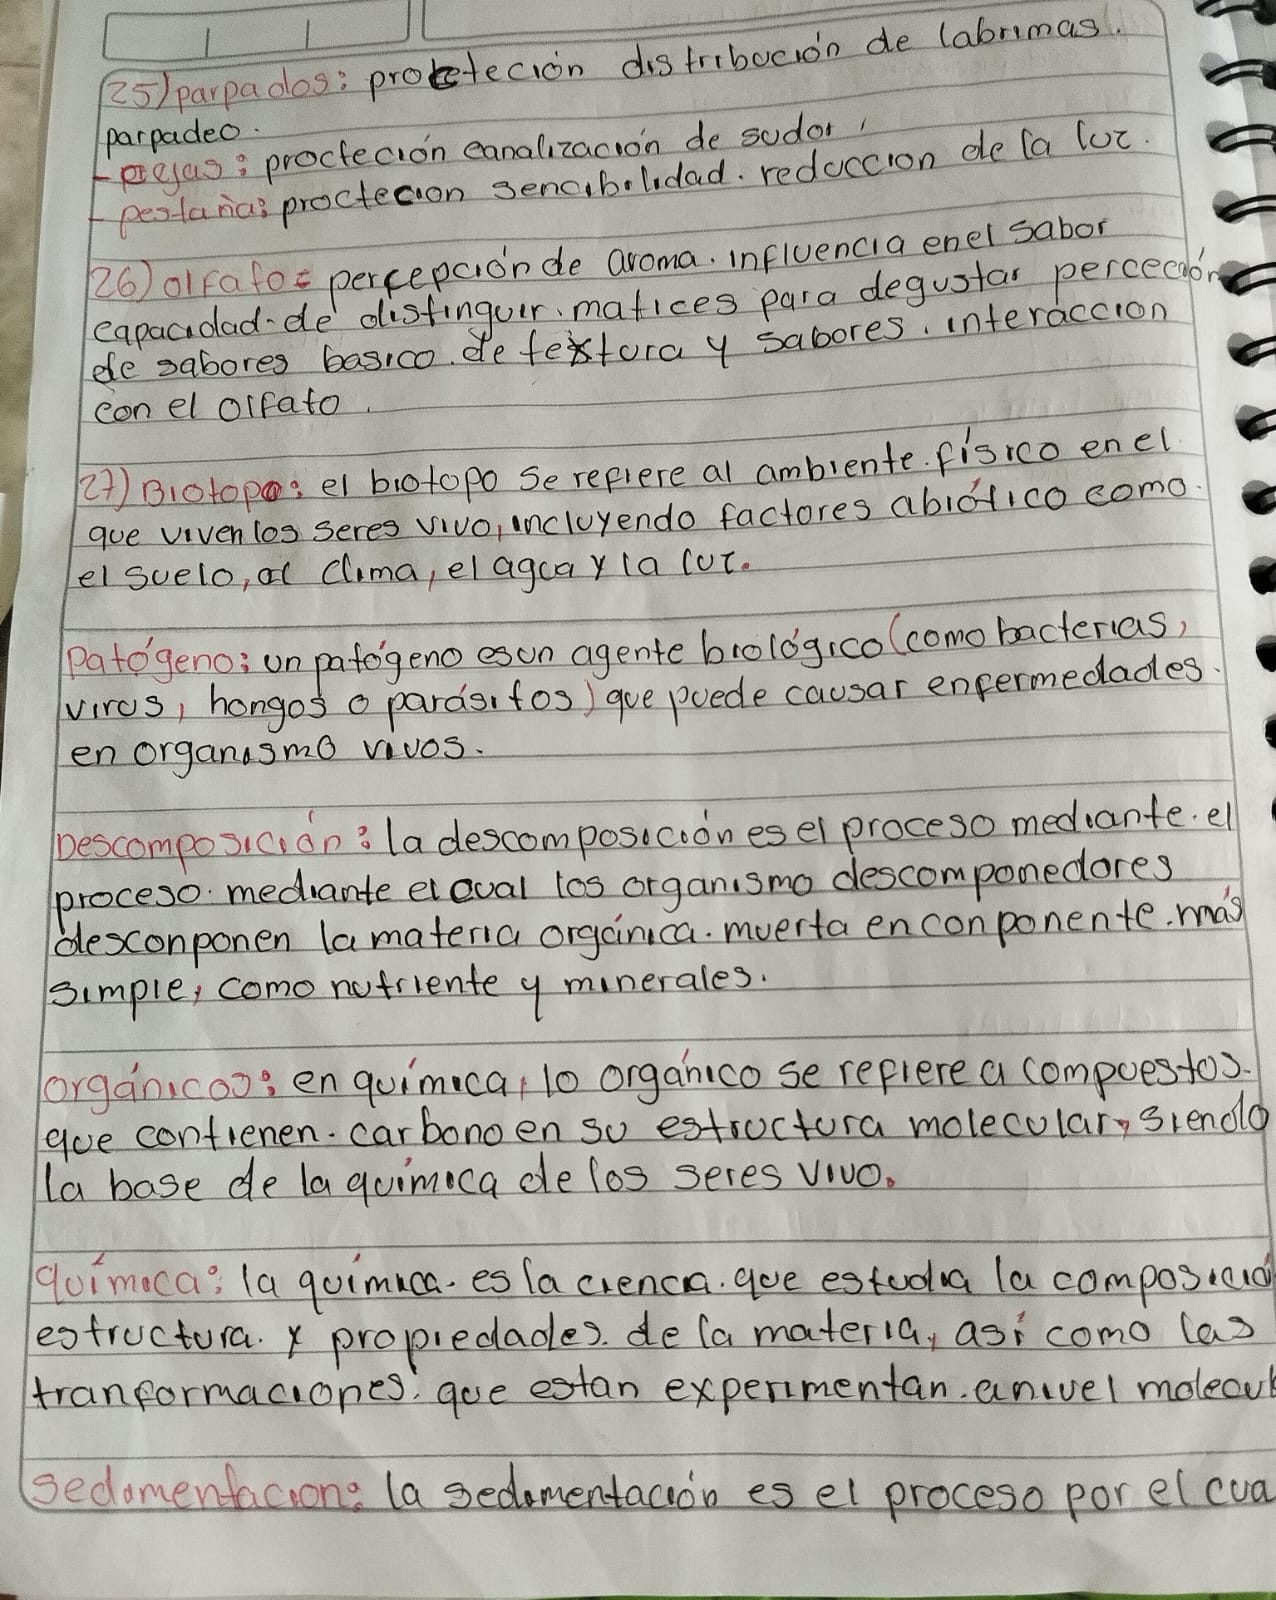 25) parpados: protetecion distribución de labrimas.
parpadeo.
- cejas: proctecion canalización de sudor,
- pestaña: proctecion sencibilidad. reduccion de la luz.
26) olfato: percepción de aroma. influencia en el sabor
capacidad de distinguir. matices para degustar percección
de sabores basico. de textura y sabores. interaccion
con el olfato.
27) Biotopo: el biotopo se refiere al ambiente físico en el
que viven los seres vivo, incluyendo factores abiótico como
el suelo, el clima, el agua y la luz.
Patógeno: un patógeno es un agente biológico (como bacterias,
virus, hongos o parásitos) que puede causar enfermedades
en organismo vivos.
Descomposición: la descomposición es el proceso mediante el
proceso mediante el cual los organismo descomponedores
desconponen la materia orgánica. muerta en conponente más
simple, como nutriente y minerales.
orgánicos: en química, lo orgánico se refiere a compuestos
que contienen carbono en su estructura molecular, siendo
la base de la química de los seres vivo.
química: la química es la ciencia que estudia la composició
estructura y propiedades de la materia, así como las
tranformaciones que estan experimentan a nivel molecul
sedimentacion: la sedimentación es el proceso por el cua